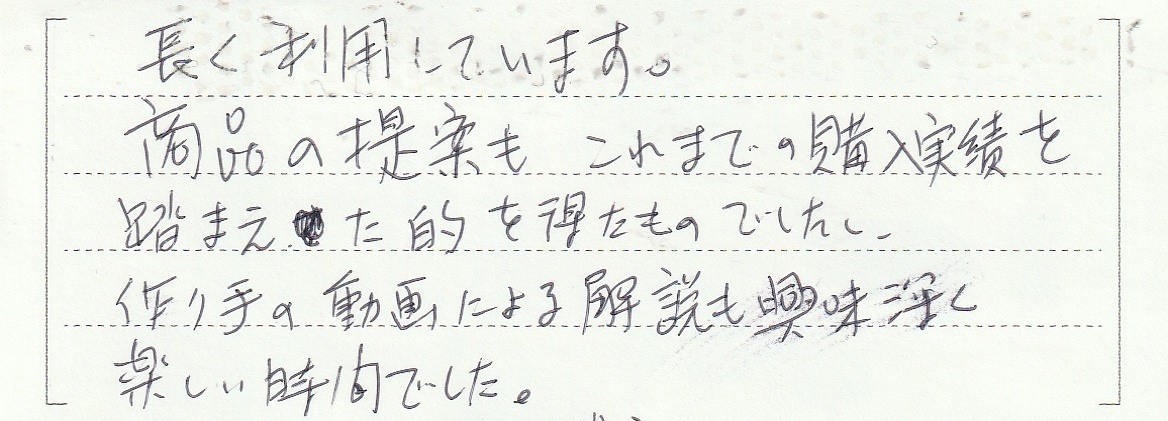 長く利用しています。
商品の提案も これまでの購入実績を
踏まえた的を得たものでしたし、
作り手の動画による解説も興味深く
楽しい時間でした。